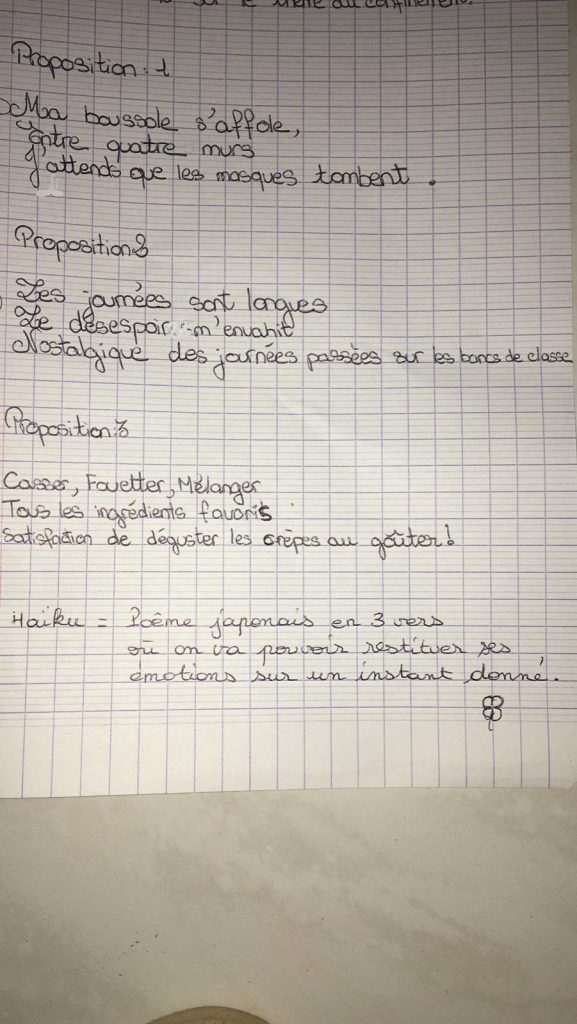 sur le thème du confinement.
Proposition : 1
Ma boussole s'affole,
Entre quatre murs
J'attends que les masques tombent.
Proposition 2
Les journées sont longues
Le désespoir m'envahit
Nostalgique des journées passées sur les bancs de classe
Proposition : 3
Casser, Fouetter, Mélanger
Tous les ingrédients favoris
Satisfaction de déguster les crêpes au goûter !
Haïku = Poême japonais en 3 vers
où on va pouvoir restituer ses
émotions sur un instant donné.